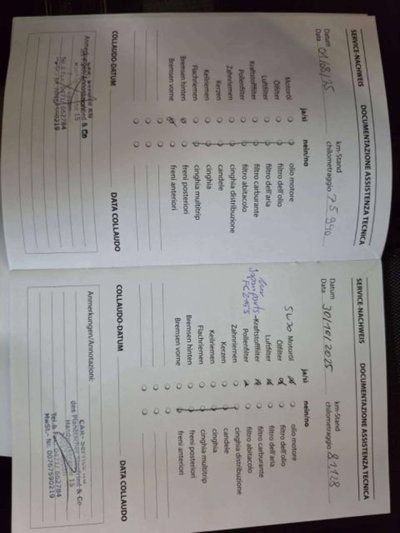 SERVICE-NACHWEIS DOCUMENTAZIONE ASSISTENZA TECNICA
Datum
Data 01/08/25
km-Stand
chilometraggio 75 940
ja/si nein/no
Motoröl olio motore
Ölfilter filtro dell'olio
Luftfilter filtro dell'aria
Kraftstofffilter filtro carburante
Pollenfilter filtro abitacolo
Zahnriemen cinghia distribuzione
Kerzen candele
Keilriemen cinghia
Flachriemen cinghia multitrip
Bremsen hinten freni posteriori
Bremsen vorne freni anteriori
COLLAUDO-DATUM DATA COLLAUDO
Anmerkungen/Annotazioni:
SERVICE-NACHWEIS DOCUMENTAZIONE ASSISTENZA TECNICA
Datum
Data 30/10/2025
km-Stand
chilometraggio 81128
ja/si nein/no
5W30 Motoröl olio motore
Ölfilter filtro dell'olio
Luftfilter filtro dell'aria
Kraftstofffilter filtro carburante
Pollenfilter filtro abitacolo
Zahnriemen cinghia distribuzione
Kerzen candele
Keilriemen cinghia
Flachriemen cinghia multitrip
Bremsen hinten freni posteriori
Bremsen vorne freni anteriori
COLLAUDO-DATUM DATA COLLAUDO
Anmerkungen/Annotazioni:
& Co
MwSt.-Nr. 00767590219